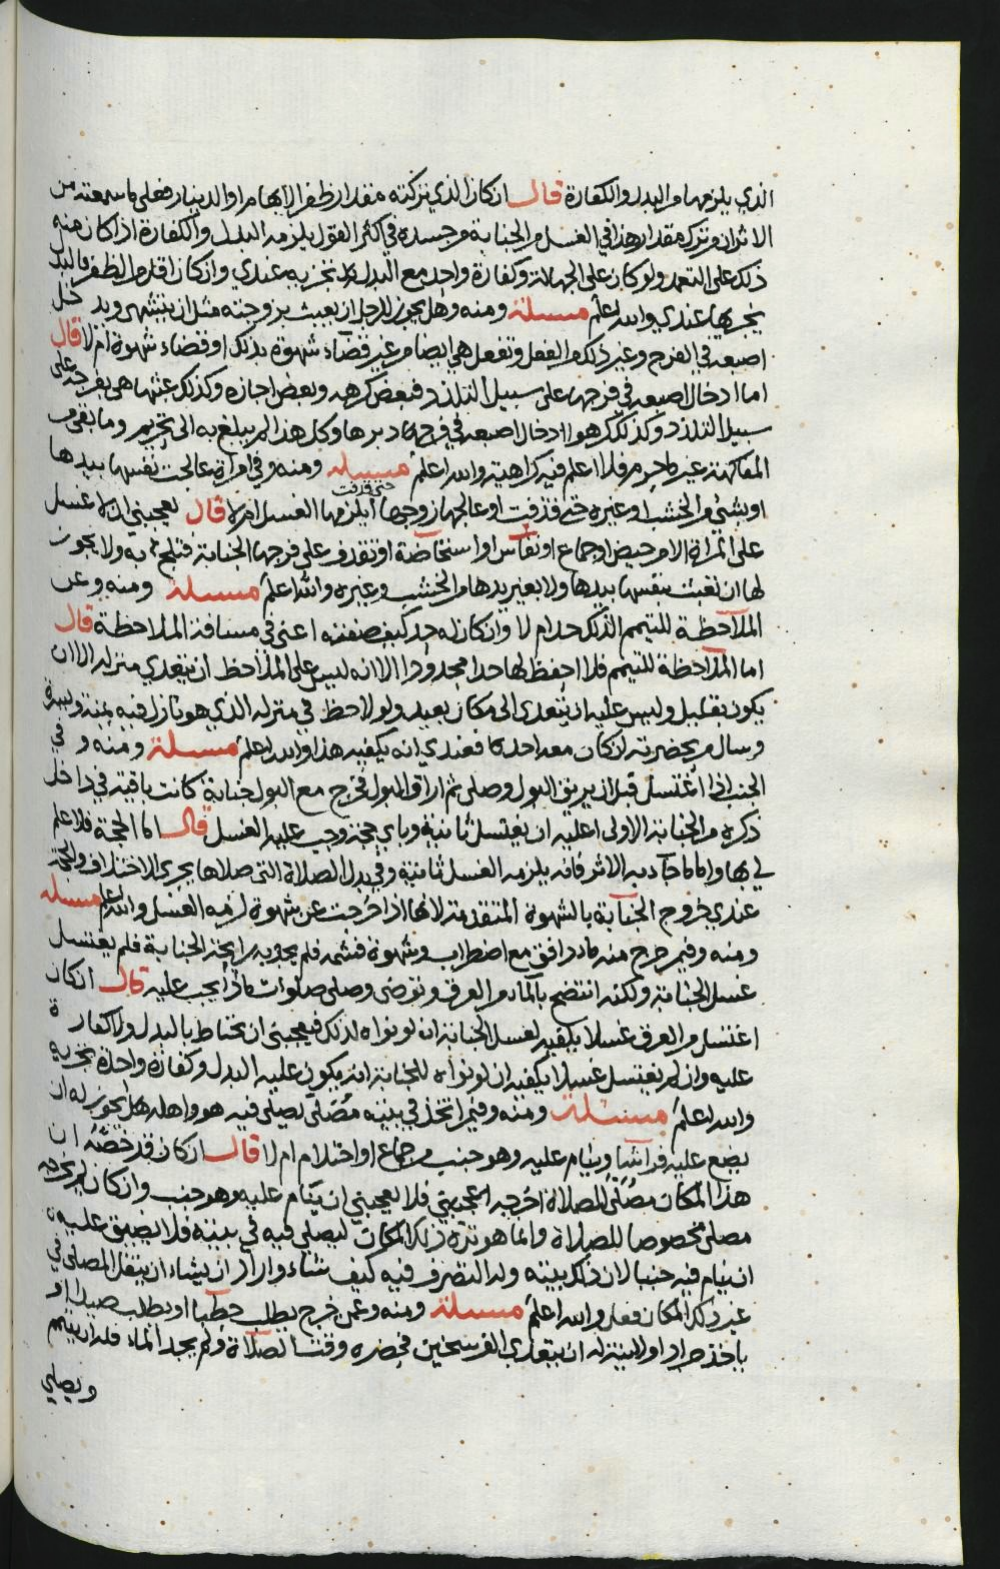 الذي يلزمها من البدل والكفارة قال ان كان الذي تركته مقدار ظفر الابهام او الدينار فعلى ما سمعته من
الاثر ان من ترك مقدار هذا في الغسل من الجنابة من جسده في اكثر القول يلزمه البدل والكفارة اذا كان منه
ذلك على التعمد ولو كان على الجهالة وكفارة واحدة مع البدل تجزيه عندي وان كان اقل من الظفر فالبدل
يجزيها عندي والله اعلم مسئلة ومنه وهل يجوز للرجل ان يعبث بزوجته مثل ان يشتهي ويدخل
اصبعه في الفرج وغير ذلك من الفعل وتفعل هي ايضا من غير قضاء شهوة بذلك او قضاء شهوة ام لا قال
اما ادخال اصبعه في فرجها على سبيل التلذذ فبعض كرهه وبعض اجازه وكذلك عبثها هي بفرجه على
سبيل التلذذ وكذلك كرهوا ادخال اصبعه في فرجها دبرها وكل هذا لم يبلغ به الى تحريم وما بقي من
المفاكهة غير ما حرم فلا اعلم فيه كراهية والله اعلم مسئلة ومنه وفي امراة عالجت نفسها بيدها
او بشيء من الخشب او غيره حتى قذفت او عالجها زوجها حتى قذفت ايلزمها الغسل ام لا قال يعجبني ان لا غسل
على المراة الا من حيض او جماع او نفاس او استحاضة او تقذف على فرجها الجنابة فتلج به ولا يجوز
لها ان تعبث بنفسها بيدها ولا بغير يدها من الخشب وغيره والله اعلم مسئلة ومنه وعن
الملاحظة للتيمم الذلك حد ام لا وان كان له حد كيف صفته اعني في مسافة الملاحظة قال
اما الملاحظة للتيمم فلا احفظ لها حدا محدودا الا انه ليس على الملاحظ ان يتعدى منزله الا ان
يكون بقليل وليس عليه ان يتعدى الى مكان بعيد ولو لاحظ في منزله الذي هو نازل فيه يمنة ويسرة
وسال من بحضرته ان كان معه احد ما فعندي انه يكفيه هذا والله اعلم مسئلة ومنه وفي
الجنب اذا اغتسل قبل ان يريق البول وصلى ثم اراق البول فخرج مع البول جنابة كانت باقية في داخل
ذكره من الجنابة الاولى اعليه ان يغتسل ثانية وباي حجة وجب عليه الغسل قال اما الحجة فلا علم
لي بها واما ما جآء به الاثر فانه يلزمه الغسل ثانية وفي بدل الصلاة التي صلاها يجري الاختلاف والحجة
عندي خروج الجنابة بالشهوة المتقدمة لانها اذا خرجت عن شهوة لزمه الغسل والله اعلم مسئلة
ومنه وفيمن خرج منه ماء دافق مع اضطراب وشهوة فشمه فلم يجد به رايحة الجنابة فلم يغتسل
غسل الجنابة ولكنه انتضح بالمآء من العرق وتوضى وصلى صلوات ماذا يجب عليه قال ان كان
اغتسل من العرق غسلا يكفيه لغسل الجنابة ان لو نواه لذلك فيعجبني ان يحتاط بالبدل ولا كفارة
عليه وان لم يغتسل غسلا يكفيه ان لو نواه للجنابة انه يكون عليه البدل وكفارة واحدة تجزيه
والله اعلم مسئلة ومنه وفيمن اتخذ في بيته مصلى يصلي فيه هو واهله هل يجوز له ان
يضع عليه فراشا وينام عليه وهو جنب من جماع او احتلام ام لا قال ان كان قد خصه ان
هذا المكان مصلى للصلاة اخرجه اعجبني فلا يعجبني ان ينام عليه وهو جنب وان كان لم يخرجه
مصلى مخصوصا للصلاة وانما هو ترك ذلك المكان ليصلي فيه في بيته فلا يضيق عليه
ان ينام فيه جنبا لان ذلك بيته وله التصرف فيه كيف شاء واراد ان يشاء ان ينقل المصلى في
غير ذلك المكان فعل والله اعلم مسئلة ومنه وعمن خرج يطلب حطبا او يطلب صيدا او
ياخذ جرادا ولا نية له ان يتعدى الفرسخين فحضره وقت الصلاة ولم يجد المآء فله ان يتيمم
ويصلي